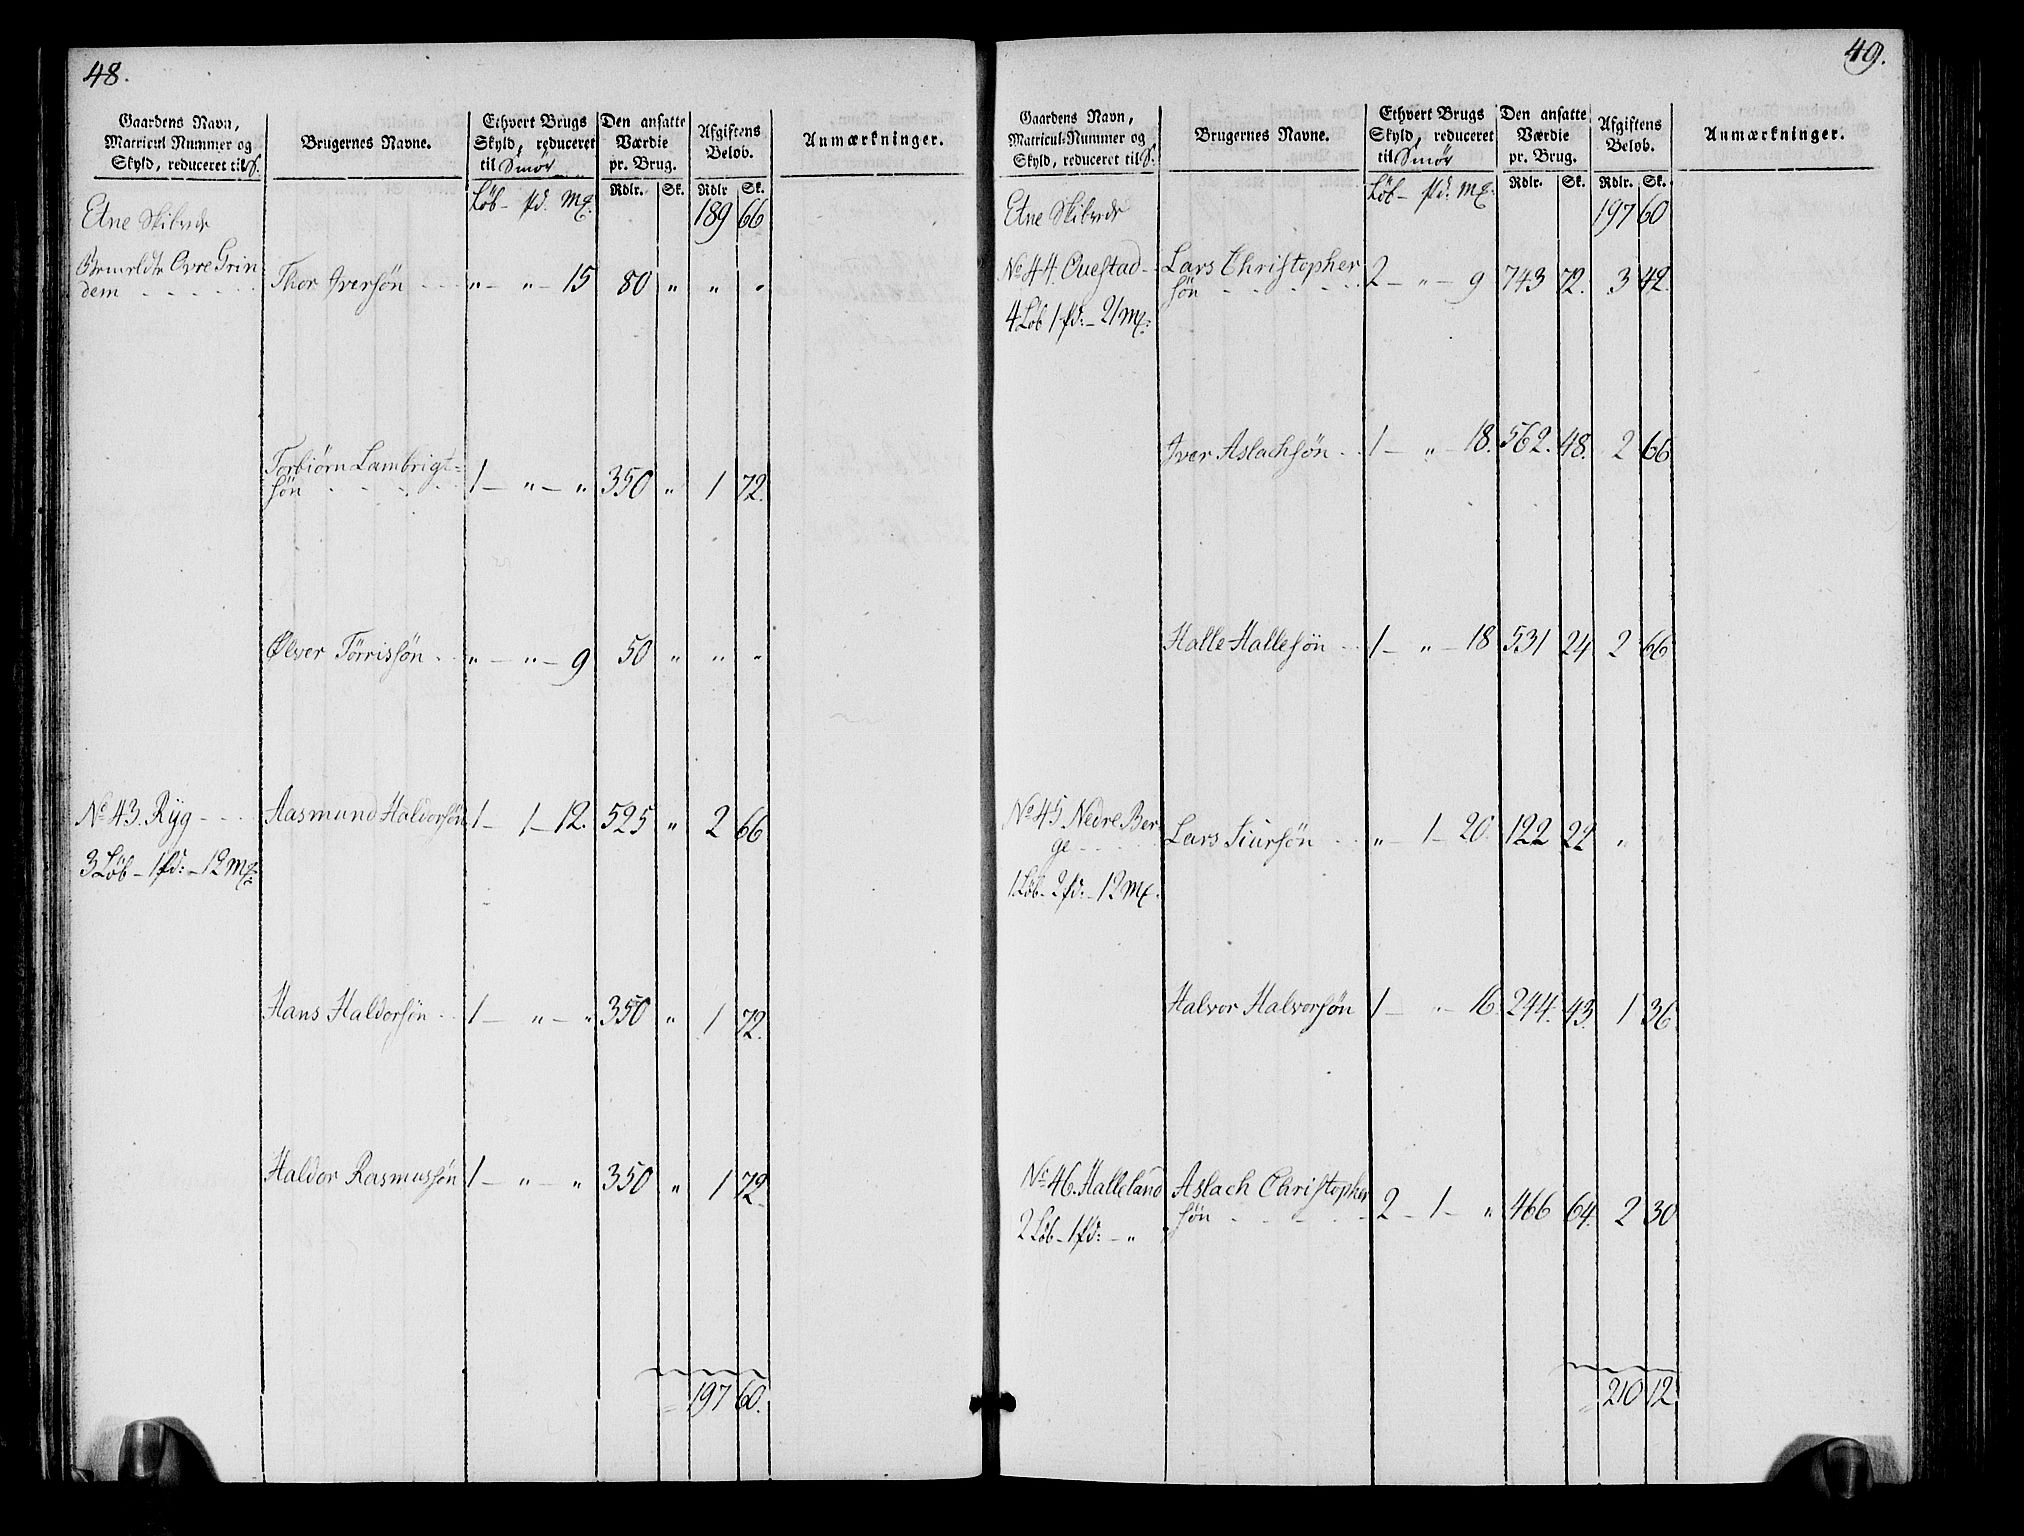 48.
Gaardens Navn, Matricul Nummer og Skyld, reduceret til S. | Brugernes Navne. | Ethvert Brugs Skyld, reduceret til Smör | Den ansatte Værdie pr. Brug. | Afgiftens Beløb. | Anmærkninger.
Löb - pd. Mk. | Rdlr. | Sk. | Rdlr | Sk.
Etne Skibrede 189 66
Øvre Grin
dem - - - Thor Iversön - - „ - „ - 15 80 „ „ „
Torbiörn Lambrigt-
sön - - - 1 - „ - „ 350 „ 1 72.
Ölver Törrissön - - „ - „ - 9 50 „ „ „
No 43. Ryg - - - Aasmund Haldorsön 1 - 1 - 12. 525 „ 2 66
3 Löb - 1 pd: - 12 Mk:
Hans Haldorsön - - 1 - „ - „ 350 „ 1 72.
Haldor Rasmussön 1 - „ - „ 350 „ 1 72.
197 60.
49.
Gaardens Navn, Matricul-Nummer og Skyld, reduceret til S. | Brugernes Navne. | Ethvert Brugs Skyld, reduceret til Smör | Den ansatte Værdie pr. Brug. | Afgiftens Beløb. | Anmærkninger.
Löb - pd. Mk. | Rdlr. | Sk. | Rdlr. | Sk.
Etne Skibrede 197 60
No 44. Questad - Lars Christopher
sön - - - 2 - „ - 9 743 72. 3 42.
4 Löb 1 pd: - 21 Mk:
Iver Aslachsön - - 1 - „ - 18. 562. 48. 2 66
Halle Hallesön - - 1 - „ - 18 531 24 2 66
No 45. Nedre Ber-
ge - - - Lars Siursön - - „ - 1 - 20. 122 22 „ „
1 Löb - 2 pd: - 12 Mk.
Halvor Halvorsön 1 - „ - 16. 244. 43. 1 36
No 46. Halleland Aslach Christopher
sön - - - 2 - 1 - „ 466 64. 2 30
2 Löb - 1 pd: - „
210 12.